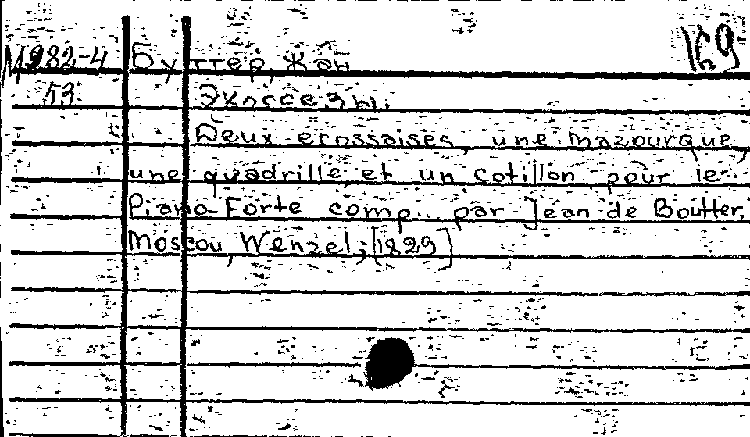 М982-4 Буттер, Жан
53. Экоссезы.
Deux ecossaises, une mazourque,
une quadrille et un cotillon pour le
Piano-Forte comp. par Jean de Boutter.
Moscou, Wenzel, [1829]